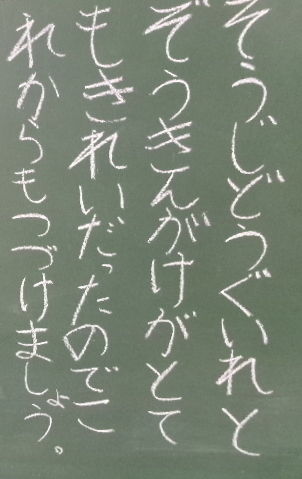 そうじどうぐいれと
ぞうきんがけがとて
もきれいだったのでこ
れからもつづけましょう。